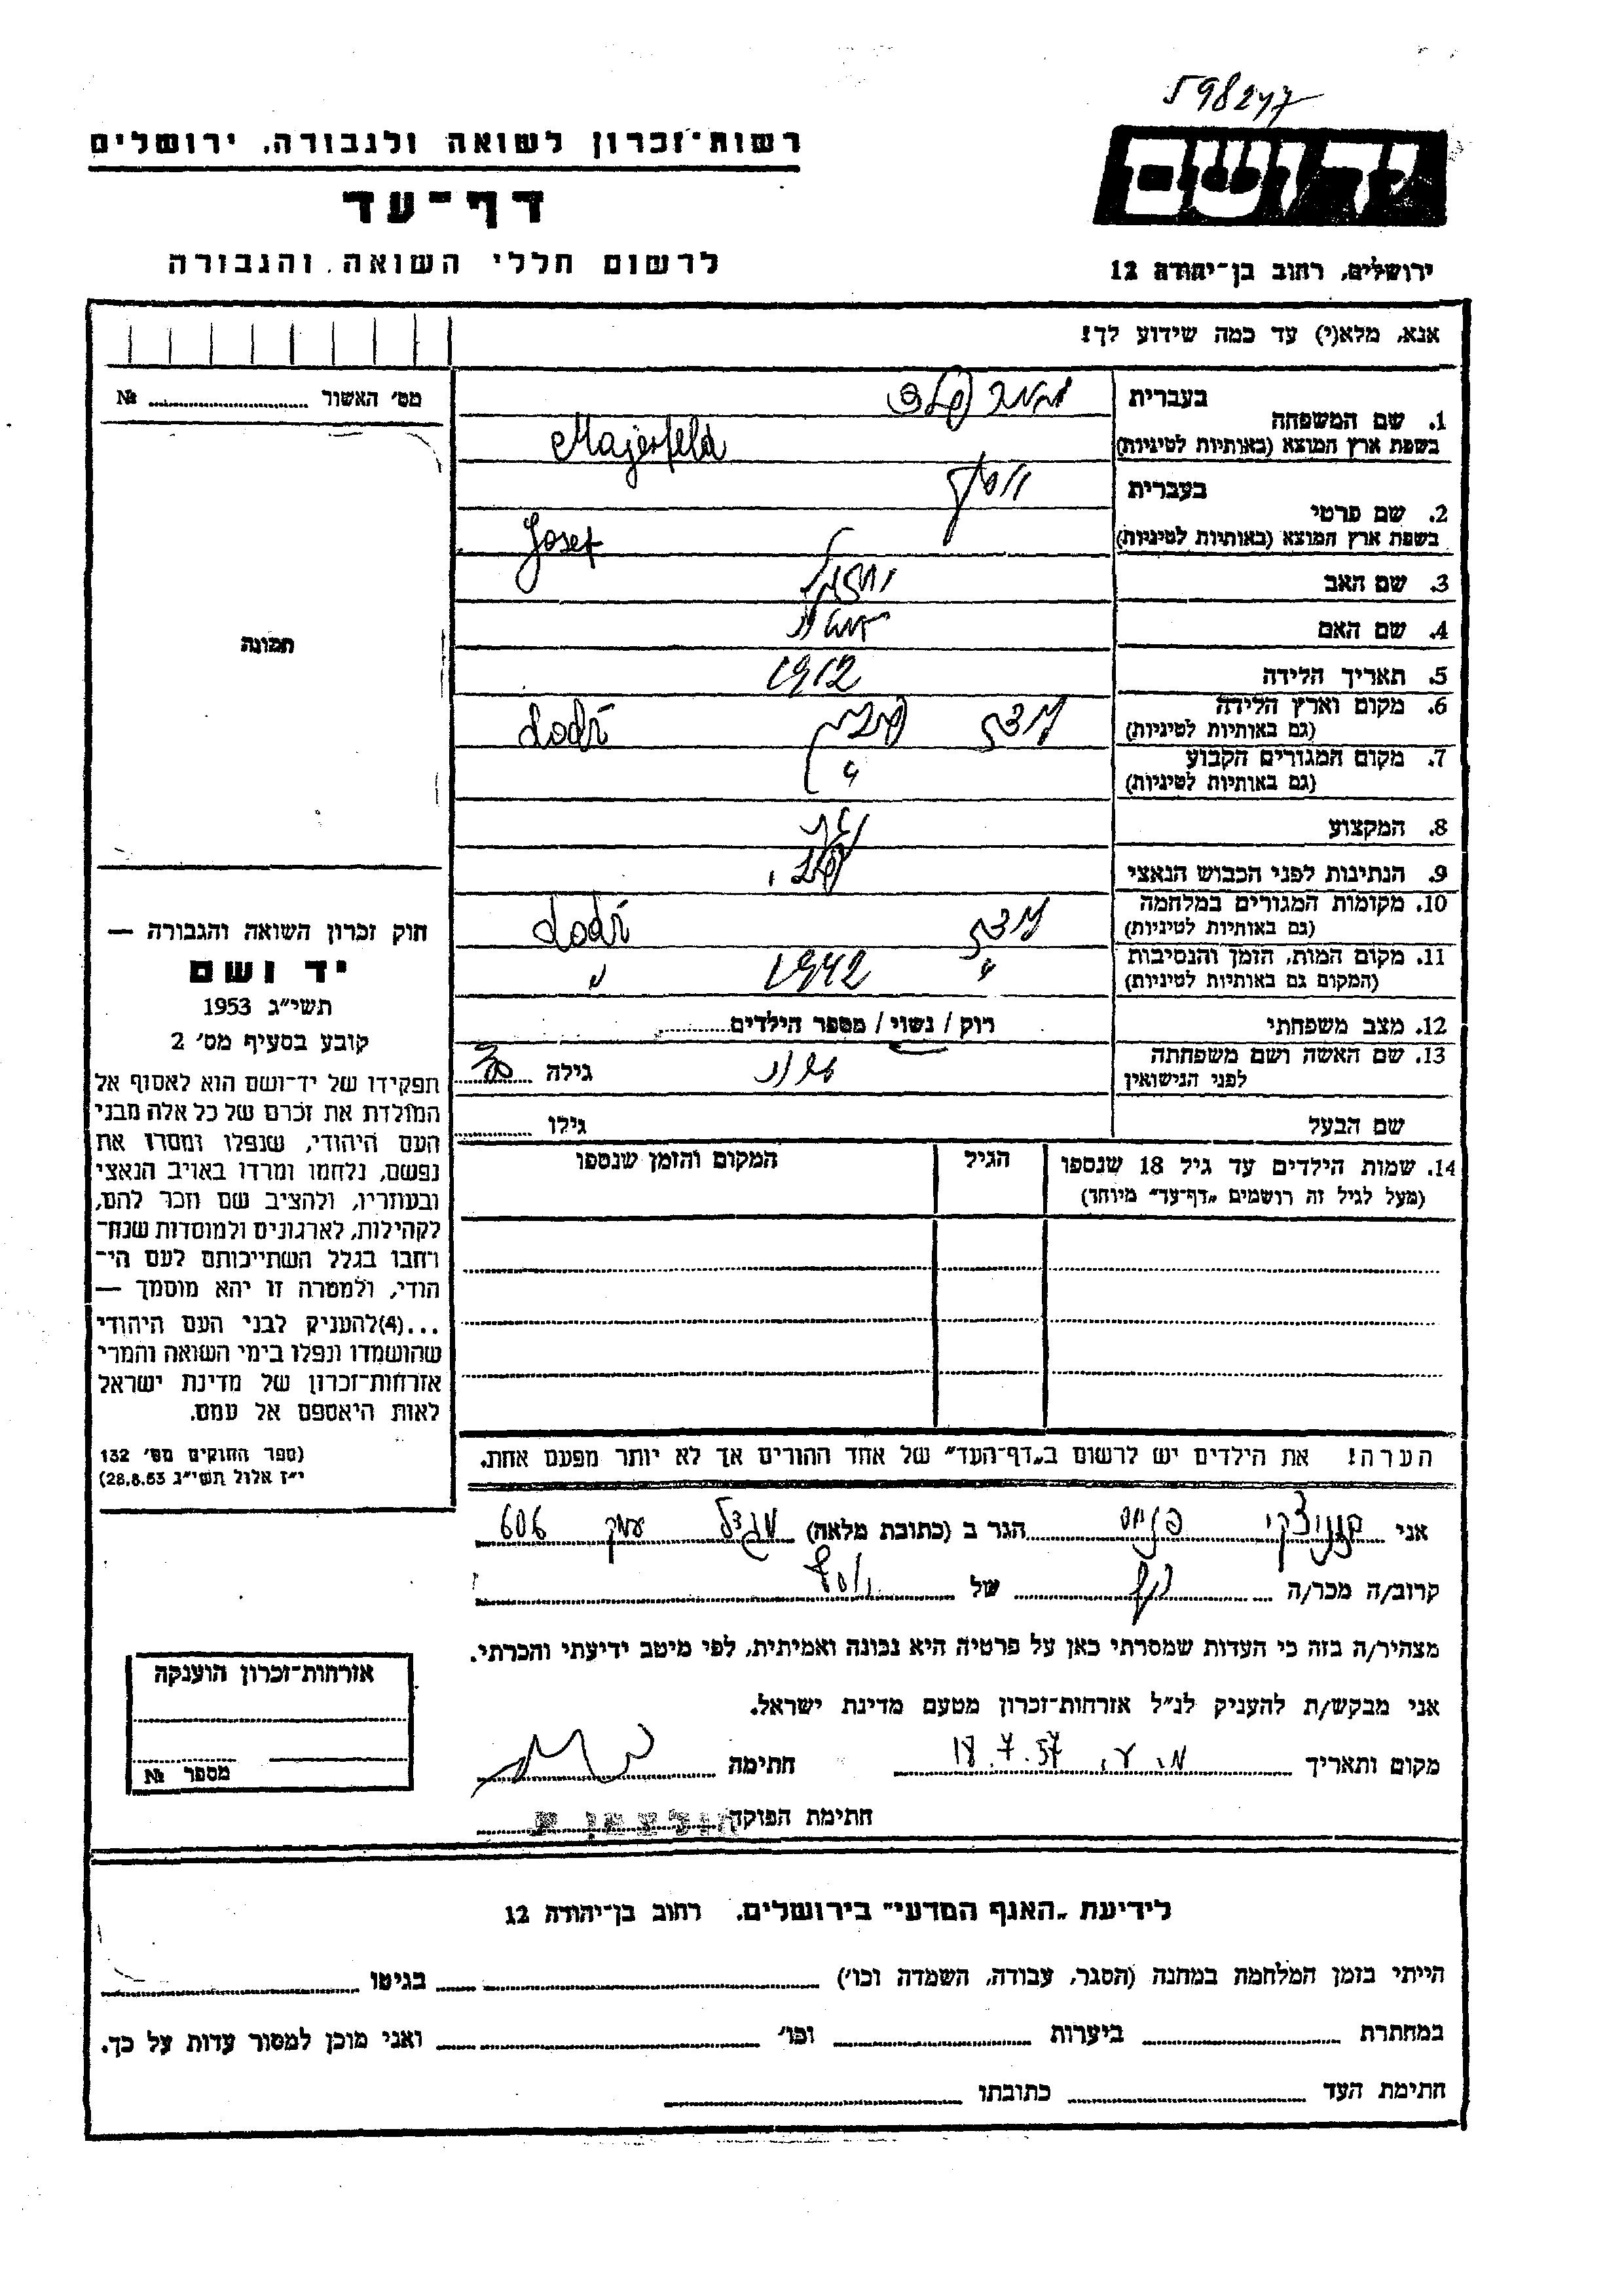 598247
רשות־זכרון לשואה ולגבורה. ירושלים
דף־עד
לרשום חללי השואה והגבורה
יד ושם
ירושלים, רחוב בן־יהודה 12
אנא, מלא(י) עד כמה שידוע לך!
מס׳ האשור ........ №
תמונה
חוק זכרון השואה והגבורה —
יד ושם
תשי״ג 1953
קובע בסעיף מס׳ 2
תפקידו של יד־ושם הוא לאסוף אל
המולדת את זכרם של כל אלה מבני
העם היהודי, שנפלו ומסרו את
נפשם, נלחמו ומרדו באויב הנאצי
ובעוזריו, ולהציב שם וזכר להם,
לקהילות, לארגונים ולמוסדות שנח־
רחבו בגלל השתייכותם לעם הי־
הודי, ולמטרה זו יהא מוסמך —
...(4)להעניק לבני העם היהודי
שהושמדו ונפלו בימי השואה והמרי
אזרחות־זכרון של מדינת ישראל
לאות היאספם אל עמם.
(ספר החוקים מס׳ 132
י״ז אלול תשי״ג 28.8.53)
בעברית
1. שם המשפחה
בשפת ארץ המוצא (באותיות לטיניות) Majerfeld
בעברית יוסף
2. שם פרטי
בשפת ארץ המוצא (באותיות לטיניות) Josef
3. שם האב
4. שם האם
5. תאריך הלידה 1912
6. מקום וארץ הלידה לודז׳ פולין Lodź
(גם באותיות לטיניות)
7. מקום המגורים הקבוע "
(גם באותיות לטיניות)
8. המקצוע
9. הנתינות לפני הכבוש הנאצי פולנ׳
10. מקומות המגורים במלחמה לודז׳ Lodź
(גם באותיות לטיניות)
11. מקום המות, הזמן והנסיבות " 1942 "
(המקום גם באותיות לטיניות)
12. מצב משפחתי רוק / נשוי / מספר הילדים........
13. שם האשה ושם משפחתה גילה 30
לפני הנישואין
שם הבעל גילו ........
14. שמות הילדים עד גיל 18 שנספו הגיל המקום והזמן שנספו
(מעל לגיל זה רושמים „דף־עד״ מיוחד)
הערה! את הילדים יש לרשום ב„דף־העד״ של אחד ההורים אך לא יותר מפעם אחת.
אני פנחס הגר ב (כתובת מלאה) מגדל עמק 606
קרוב/ה מכר/ה של יוסף
מצהיר/ה בזה כי העדות שמסרתי כאן על פרטיה היא נכונה ואמיתית, לפי מיטב ידיעתי והכרתי.
אני מבקש/ת להעניק לנ״ל אזרחות־זכרון מטעם מדינת ישראל.
מקום ותאריך מ. ע. 18.7.57 חתימה
חתימת הפוקד
אזרחות־זכרון הוענקה
מספר №
לידיעת „האגף המדעי״ בירושלים. רחוב בן־יהודה 12
הייתי בזמן המלחמה במחנה (הסגר, עבודה, השמדה וכו׳) ........ בגיטו ........
במחתרת ........ ביערות ........ וכו׳ ........ ואני מוכן למסור עדות על כך.
חתימת העד ........ כתובתו ........